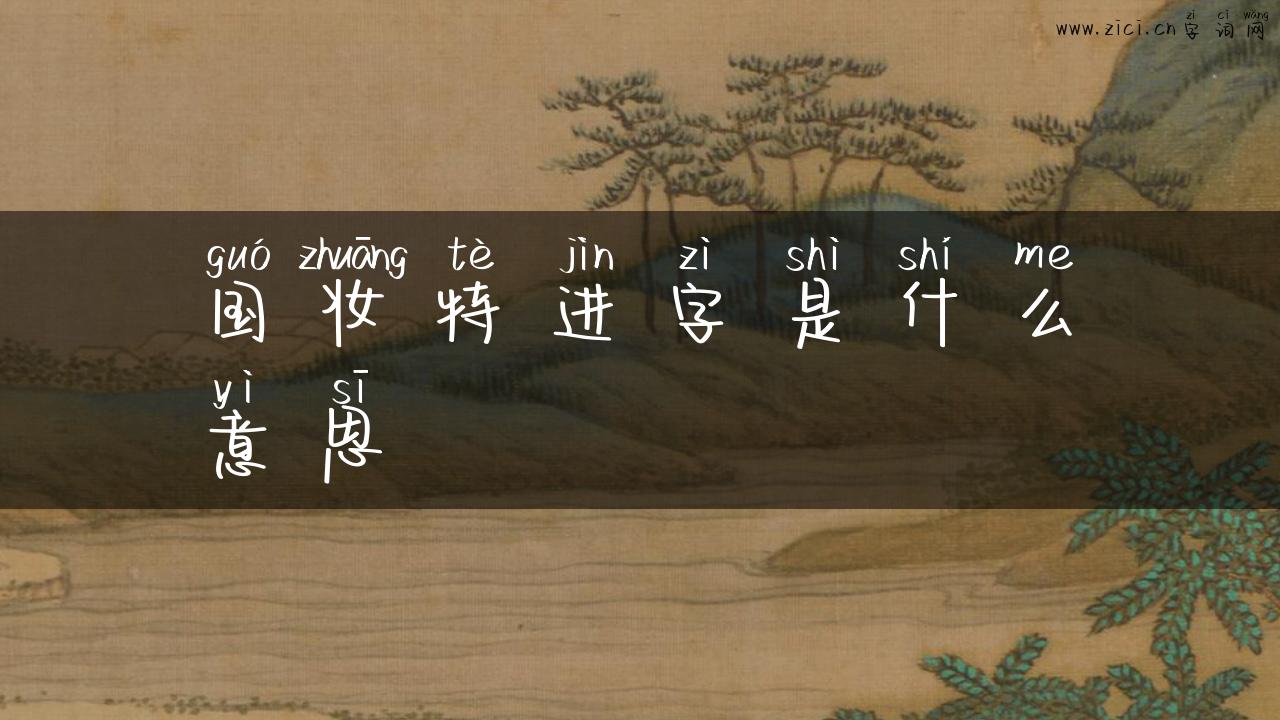 zì cí wǎng
www.zici.cn 字词网
guó zhuāng tè jìn zì shì shí me
国妆特进字是什么
yì sī
意思